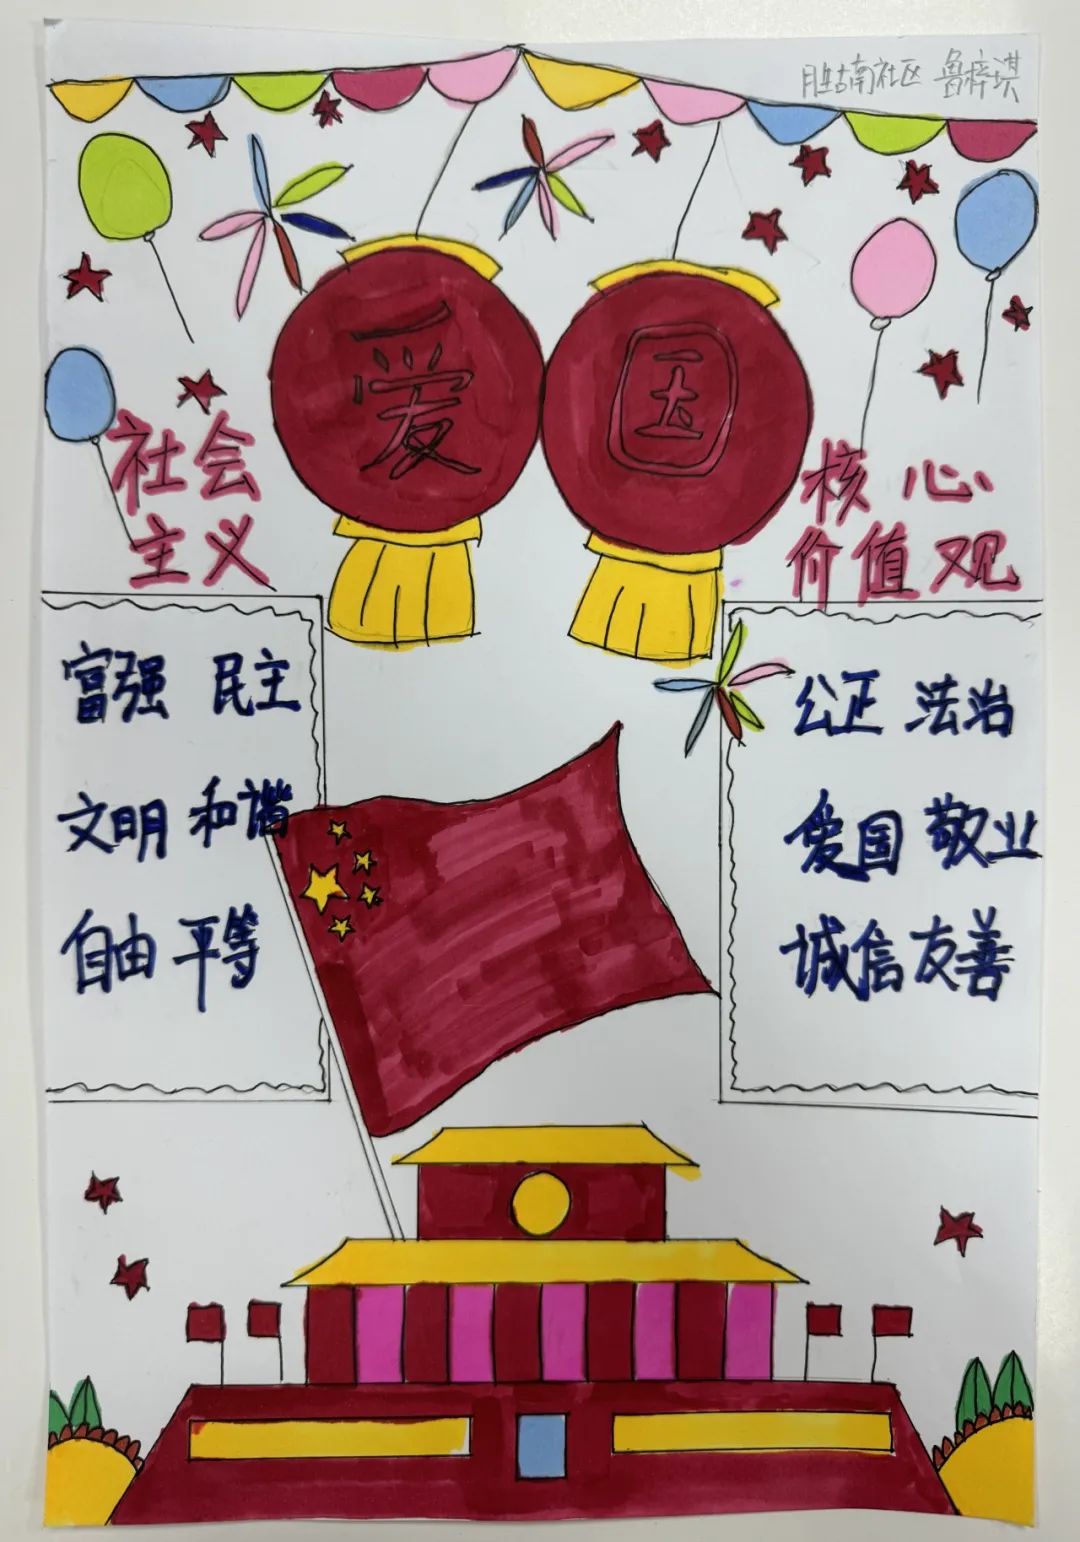 胜古南社区 鲁梓淇
爱国
社会
主义
核心
价值观
富强 民主
文明 和谐
自由 平等
公正 法治
爱国 敬业
诚信 友善